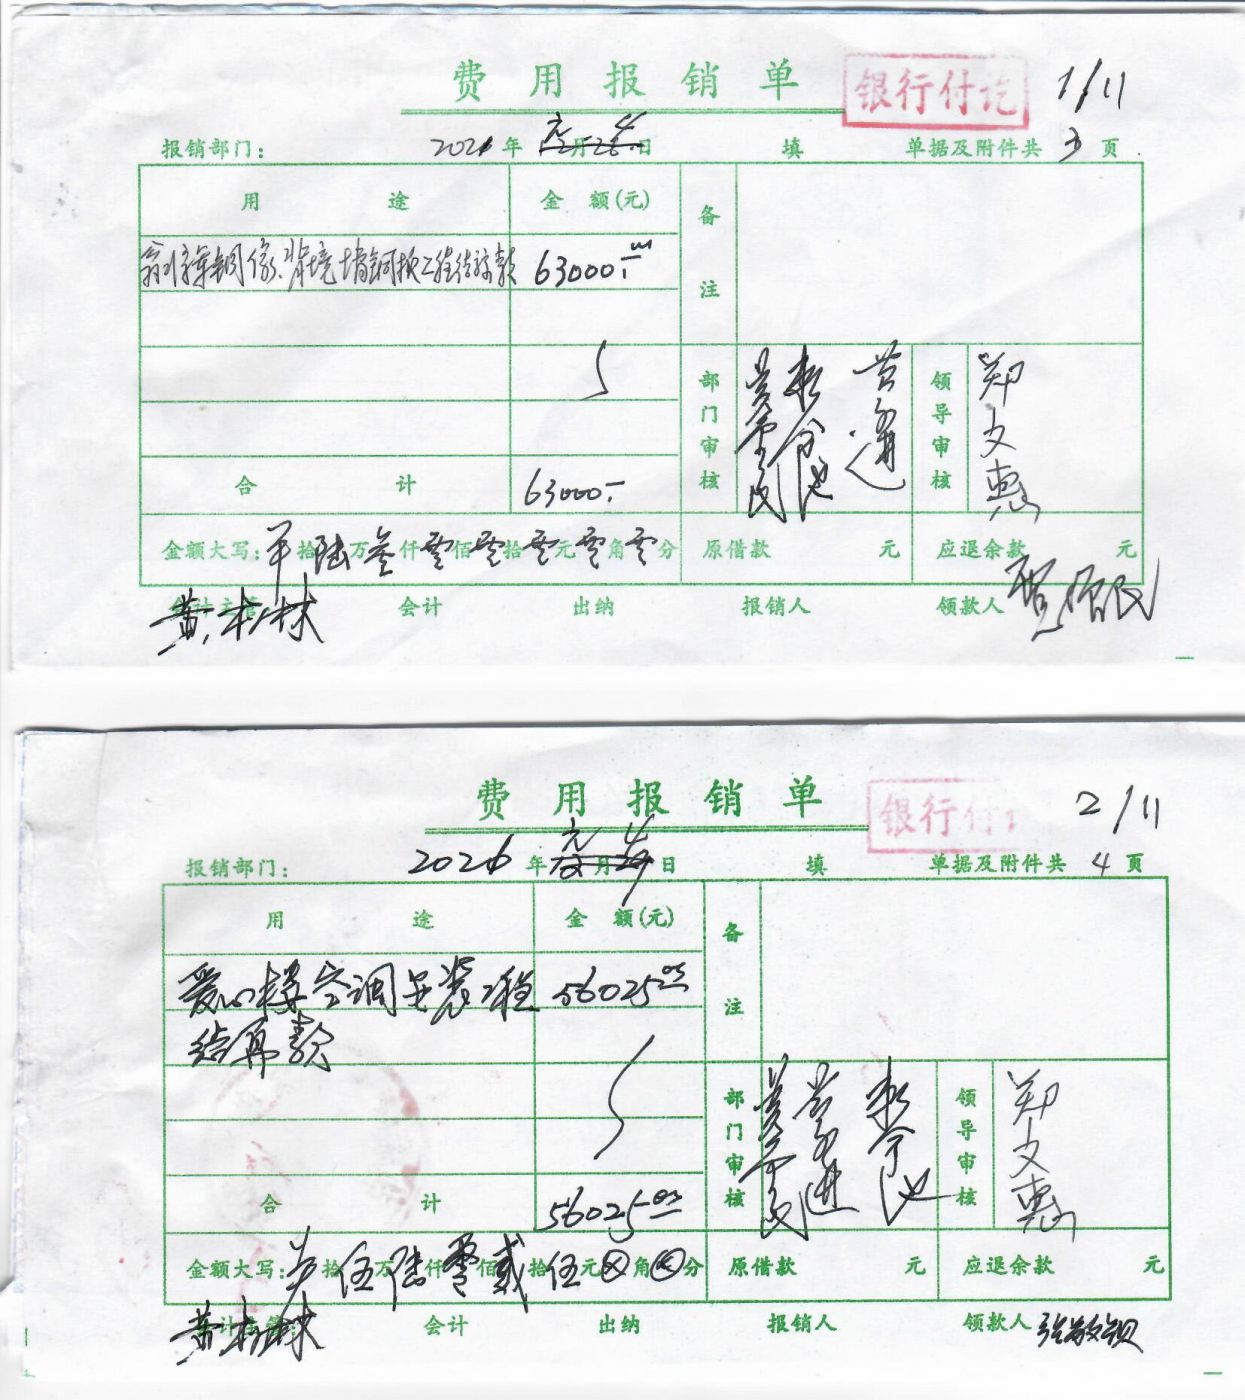 费用报销单
银行付讫
1/11
报销部门：
2021年元月4日
填
单据及附件共3页
用途
金额(元)
备注
铜像、背境墙钢板工程结算款
63000.-
部门审核
领导审核
郑文惠
合计
63000.-
金额大写：拾陆万叁仟零佰零拾零元零角零分
原借款 元
应退余款 元
会计主管
黄树林
会计
出纳
报销人
领款人
费用报销单
银行付
2/11
报销部门：
2021年元月4日
填
单据及附件共4页
用途
金额(元)
备注
爱心楼空调安装工程
56025
结算款
部门审核
领导审核
郑文惠
合计
56025
金额大写：拾伍万陆仟零佰贰拾伍元⊗角⊗分
原借款 元
应退余款 元
黄树林
会计
出纳
报销人
领款人